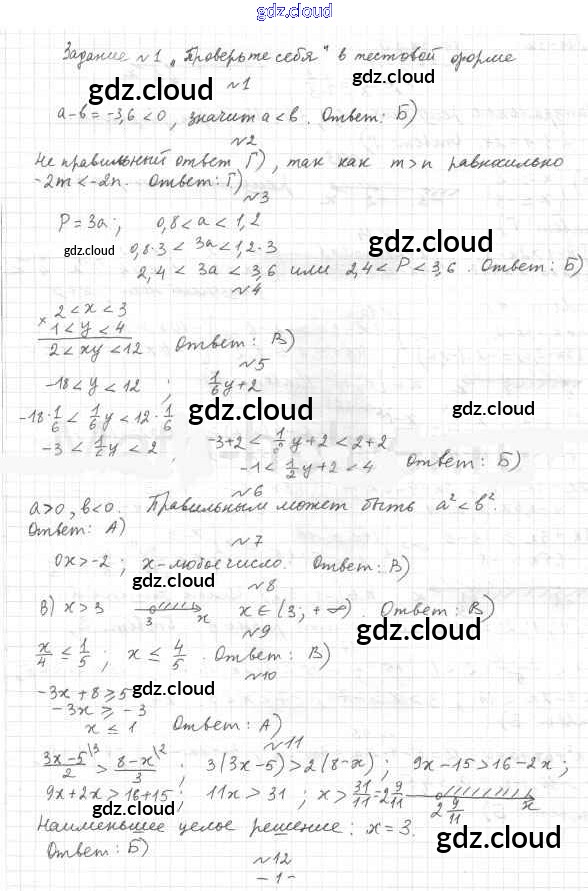 gdz.cloud
Задание №1 „Проверьте себя“ в тестовой форме
gdz.cloud
№1
gdz.cloud
a-b=-3,6<0, значит a<b. Ответ: Б)
№2
Не правильный ответ Г), так как m>n равносильно
-2m<-2n. Ответ: Г)
№3
P=3a; 0,8<a<1,2
gdz.cloud 0,8·3<3a<1,2·3 gdz.cloud
2,4<3a<3,6 или 2,4<P<3,6. Ответ: Б)
№4
× 2<x<3
1<y<4
2<xy<12 Ответ: В)
№5
-18<y<12; 1/6 y+2
-18·1/6<1/6 y<12·1/6 gdz.cloud gdz.cloud
-3<1/6 y<2, -3+2<1/6 y+2<2+2
-1<1/2 y+2<4 Ответ: Б)
№6
a>0, b<0. Правильным может быть a²<b².
Ответ: А)
№7
0x>-2; x-любое число. Ответ: В)
gdz.cloud
№8
В) x>3 3 x x∈(3;+∞). Ответ: В)
№9 gdz.cloud
x/4≤1/5; x≤4/5. Ответ: В)
№10
-3x+8≥5 gdz.cloud
-3x≥-3
x≤1 Ответ: А)
№11
3x-5\3/2>8-x\2/3; 3(3x-5)>2(8-x); 9x-15>16-2x;
9x+2x>16+15; 11x>31; x>31/11=2 9/11 2 9/11 x
gdz.cloud
Наименьшее целое решение: x=3.
gdz.cloud
Ответ: Б)
№12
-1-